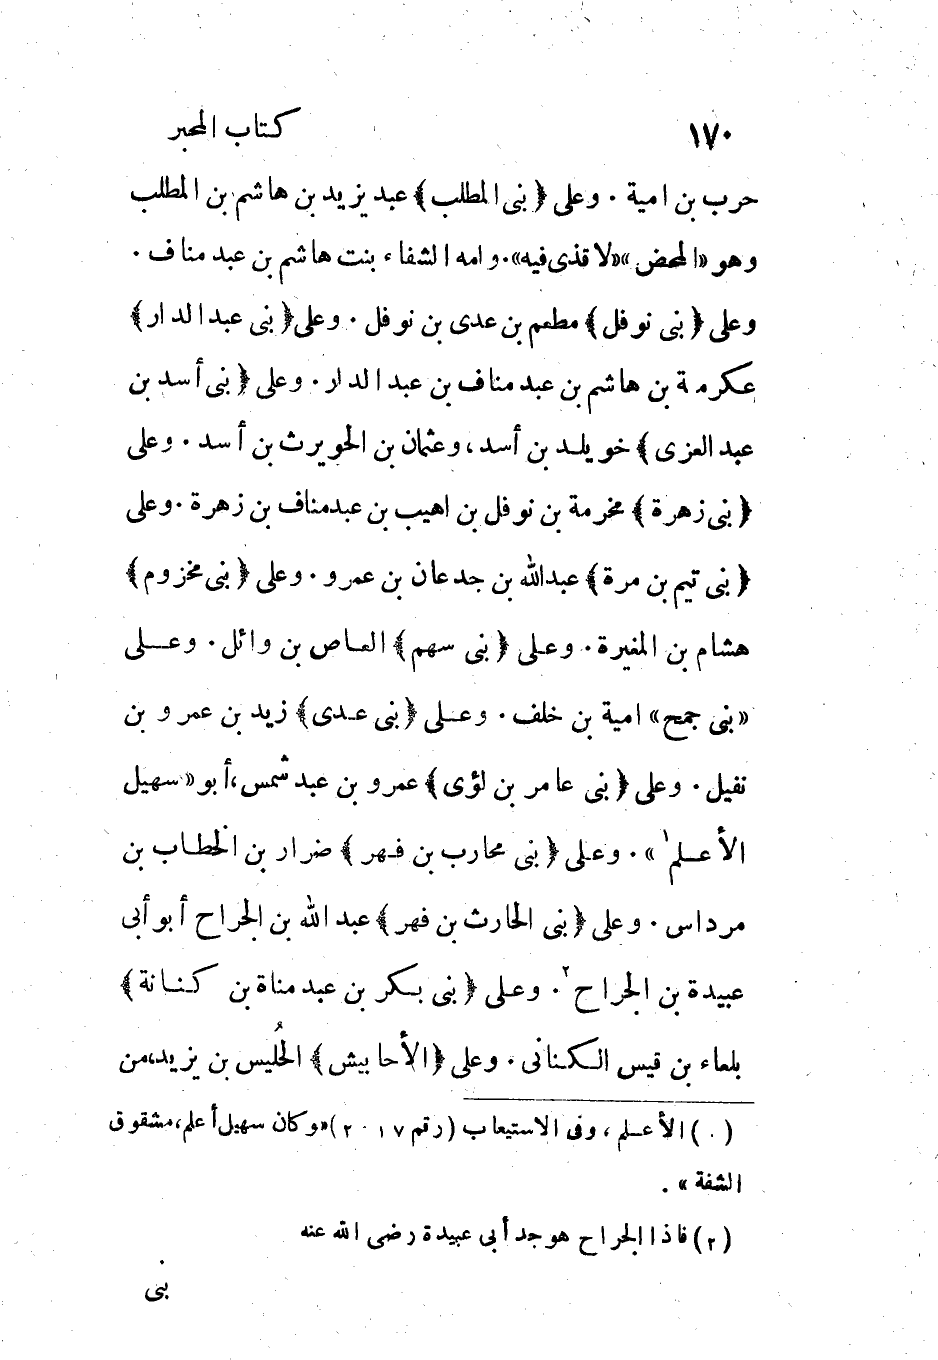 ١٧٠ كتاب المحبر
حرب بن امية . وعلى ﴿ بنى المطلب ﴾ عبد يزيد بن هاشم بن المطلب
وهو «المحض» «لا قذى فيه». وامه الشفاء بنت هاشم بن عبد مناف .
وعلى ﴿ بنى نوفل ﴾ مطعم بن عدى بن نوفل . وعلى ﴿ بنى عبد الدار ﴾
عكرمة بن هاشم بن عبد مناف بن عبد الدار . وعلى ﴿ بنى أسد بن
عبد العزى ﴾ خويلد بن أسد ، وعثمان بن الحويرث بن أسد . وعلى
﴿ بنى زهرة ﴾ مخرمة بن نوفل بن اهيب بن عبد مناف بن زهرة . وعلى
﴿ بنى تيم بن مرة ﴾ عبد الله بن جدعان بن عمرو . وعلى ﴿ بنى مخزوم ﴾
هشام بن المغيرة . وعلى ﴿ بنى سهم ﴾ العاص بن وائل . وعلى
«بنى جمح» امية بن خلف . وعلى ﴿ بنى عدى ﴾ زيد بن عمرو بن
نفيل . وعلى ﴿ بنى عامر بن لؤى ﴾ عمرو بن عبد شمس ، أبو «سهيل
الأعلم١» . وعلى ﴿ بنى محارب بن فهر ﴾ ضرار بن الخطاب بن
مرداس . وعلى ﴿ بنى الحارث بن فهر ﴾ عبد الله بن الجراح أبو أبى
عبيدة بن الجراح٢ . وعلى ﴿ بنى بكر بن عبد مناة بن كنانة ﴾
بلعاء بن قيس الكنانى . وعلى ﴿ الأحابيش ﴾ الحُليس بن يزيد، من
( . ) الأعلم ، وفى الاستيعاب (رقم ٢٠١٧) «وكان سهيل أعلم ، مشقوق
الشفة » .
(٢) فاذا الجراح هو جد أبى عبيدة رضى الله عنه
بنى